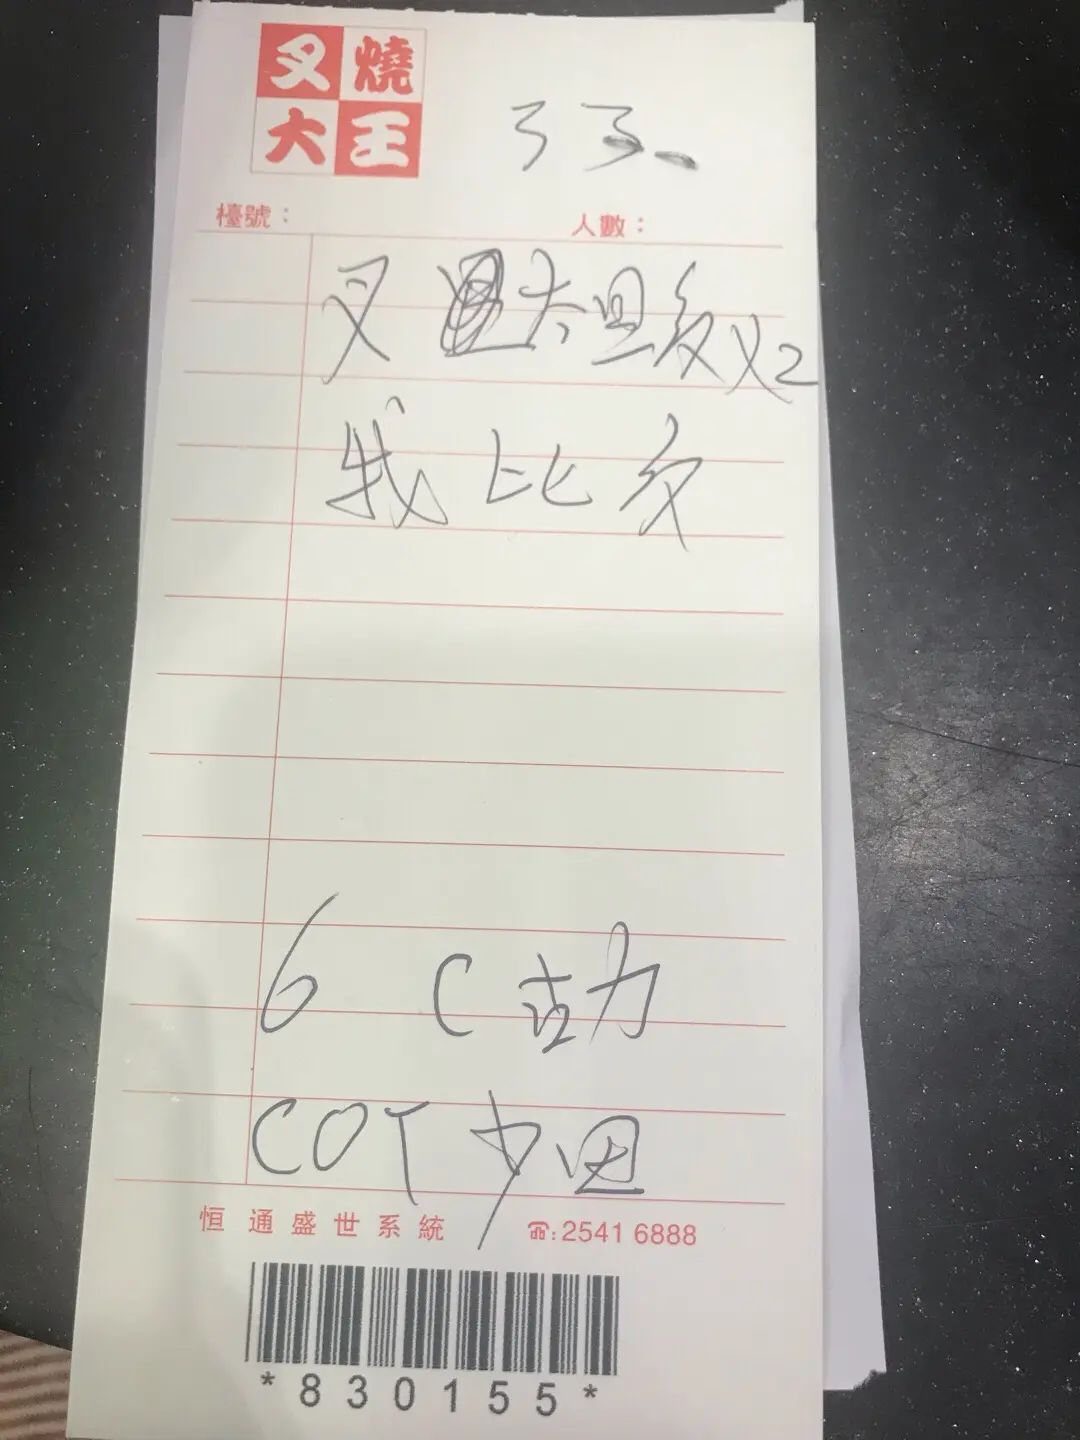 叉燒
大王
33
檯號：
人數：
叉 大旦 X2
我 比 交
6 C 动
COT 少田
恒通盛世系統 ☎:2541 6888
*830155*